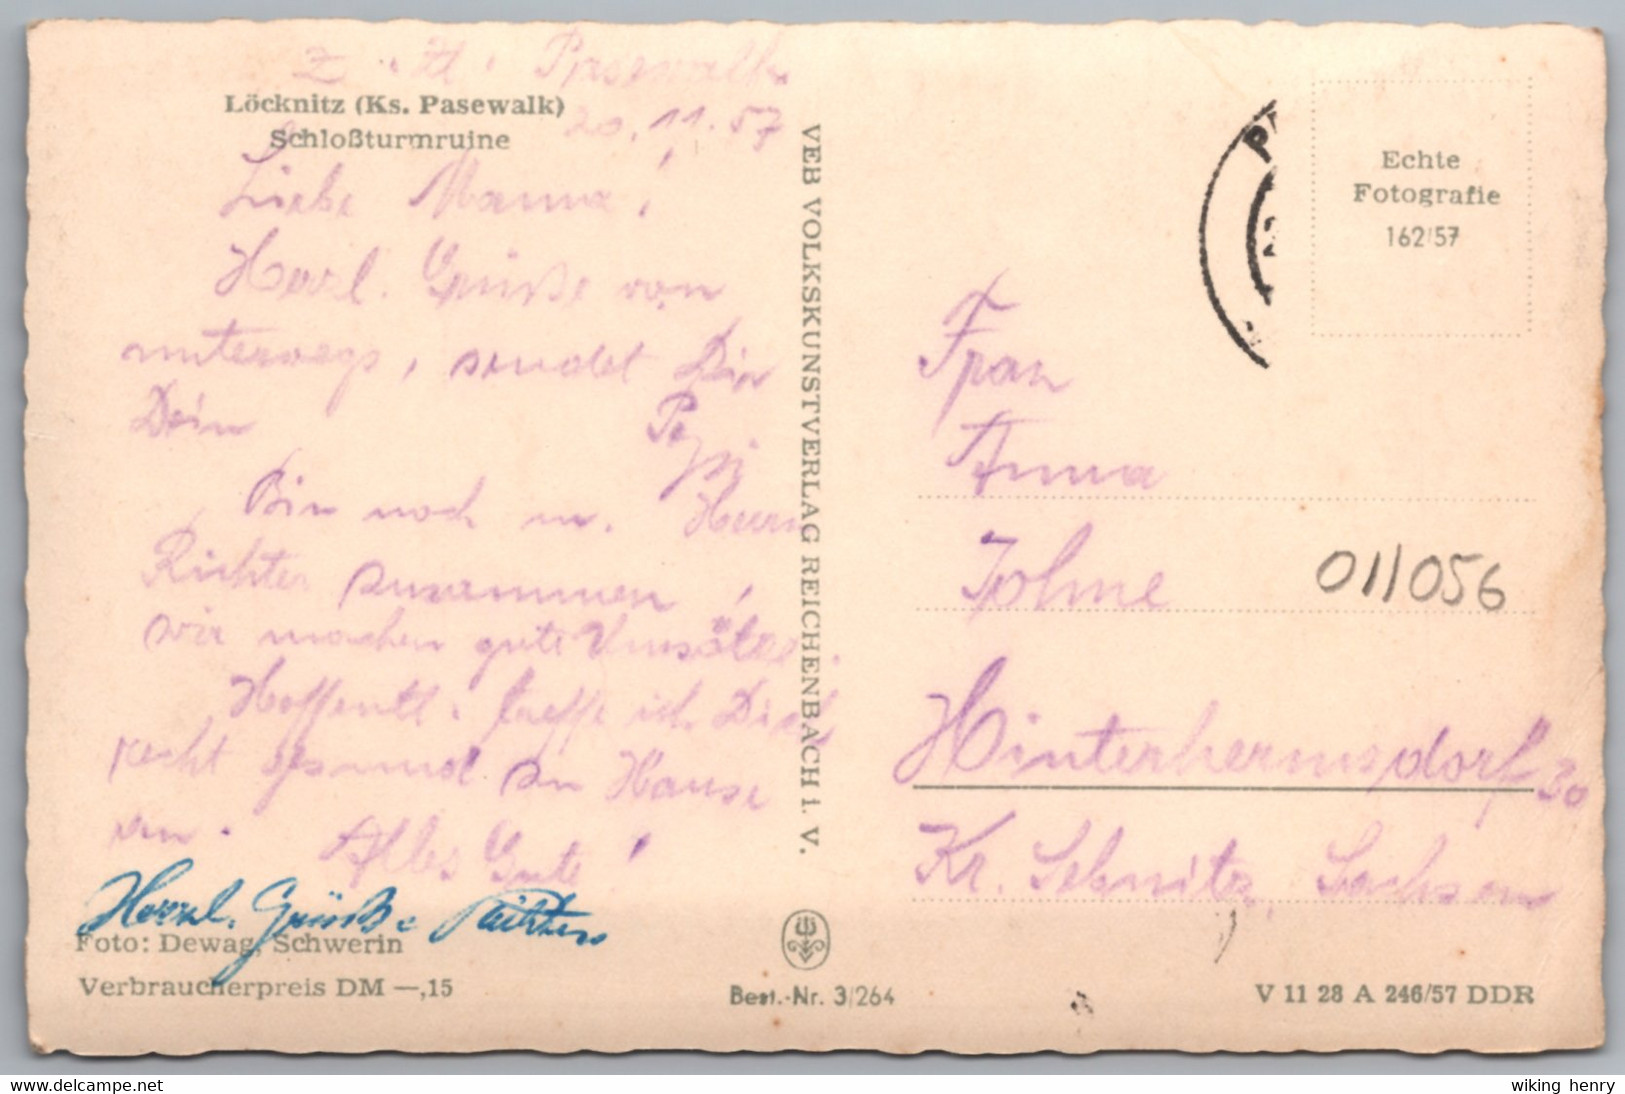 z. Zt. Pasewalk
Löcknitz (Ks. Pasewalk)
Schloßturmruine
20.11.57
Liebe Mama!
Herzl. Grüße von
unterwegs, sendet Dir
Dein Peppi
Bin noch m. Herrn
Richter zusammen,
wir machen gute Umsätze.
Hoffentl. treffe ich Dich
recht gesund zu Hause
an. Alles Gute!
Herzl. Grüße Richter
Foto: Dewag, Schwerin
Verbraucherpreis DM —,15
VEB VOLKSKUNSTVERLAG REICHENBACH i. V.
Best.-Nr. 3/264
Echte
Fotografie
162/57
Frau
Anna
011056
Hinterhermsdorf 30
Kr. Sebnitz, Sachsen
V 11 28 A 246/57 DDR
wiking henry
www.delcampe.net